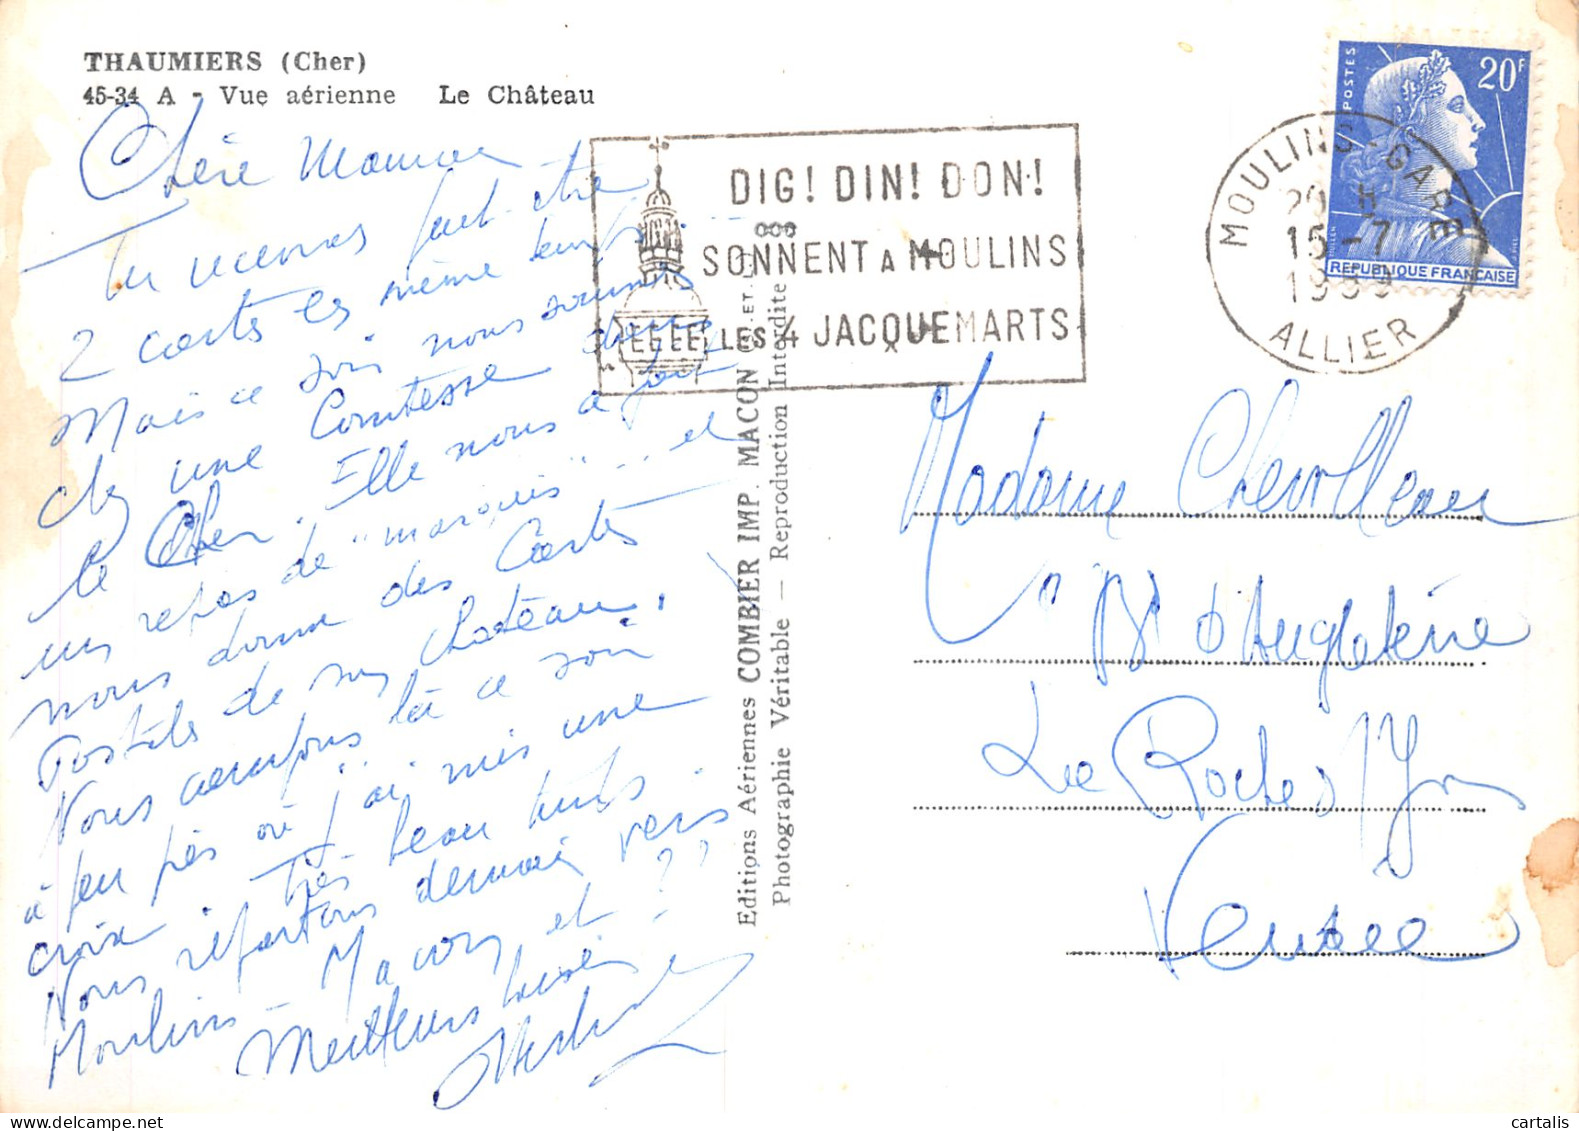 THAUMIERS (Cher)
45-34 A - Vue aérienne Le Château
Chère Maman
Tu recevras peut-être
2 cartes en même temps
Mais ce soir nous sommes
chez une Comtesse dans
le Cher. Elle nous a fait
un repas de "marquis"... et
nous donne des Cartes
Postales de son château.
Nous campons là ce soir
à peu près où j'ai mis une
croix. Très beau temps.
Nous repartons demain vers
Moulins - Macon et ? ??
Meilleurs baisers
Editions Aériennes COMBIER IMP. MACON
Photographie Véritable — Reproduction Interdite
DIG! DIN! DON!
SONNENT A MOULINS
LES 4 JACQUEMARTS
MOULINS-GARE
20 H
15-7
1959
ALLIER
POSTES
20F
MULLER
REPUBLIQUE FRANÇAISE
Madame Chevolleau
Bd d'Angleterre
La Roche s/Yon
Vendée
cartalis